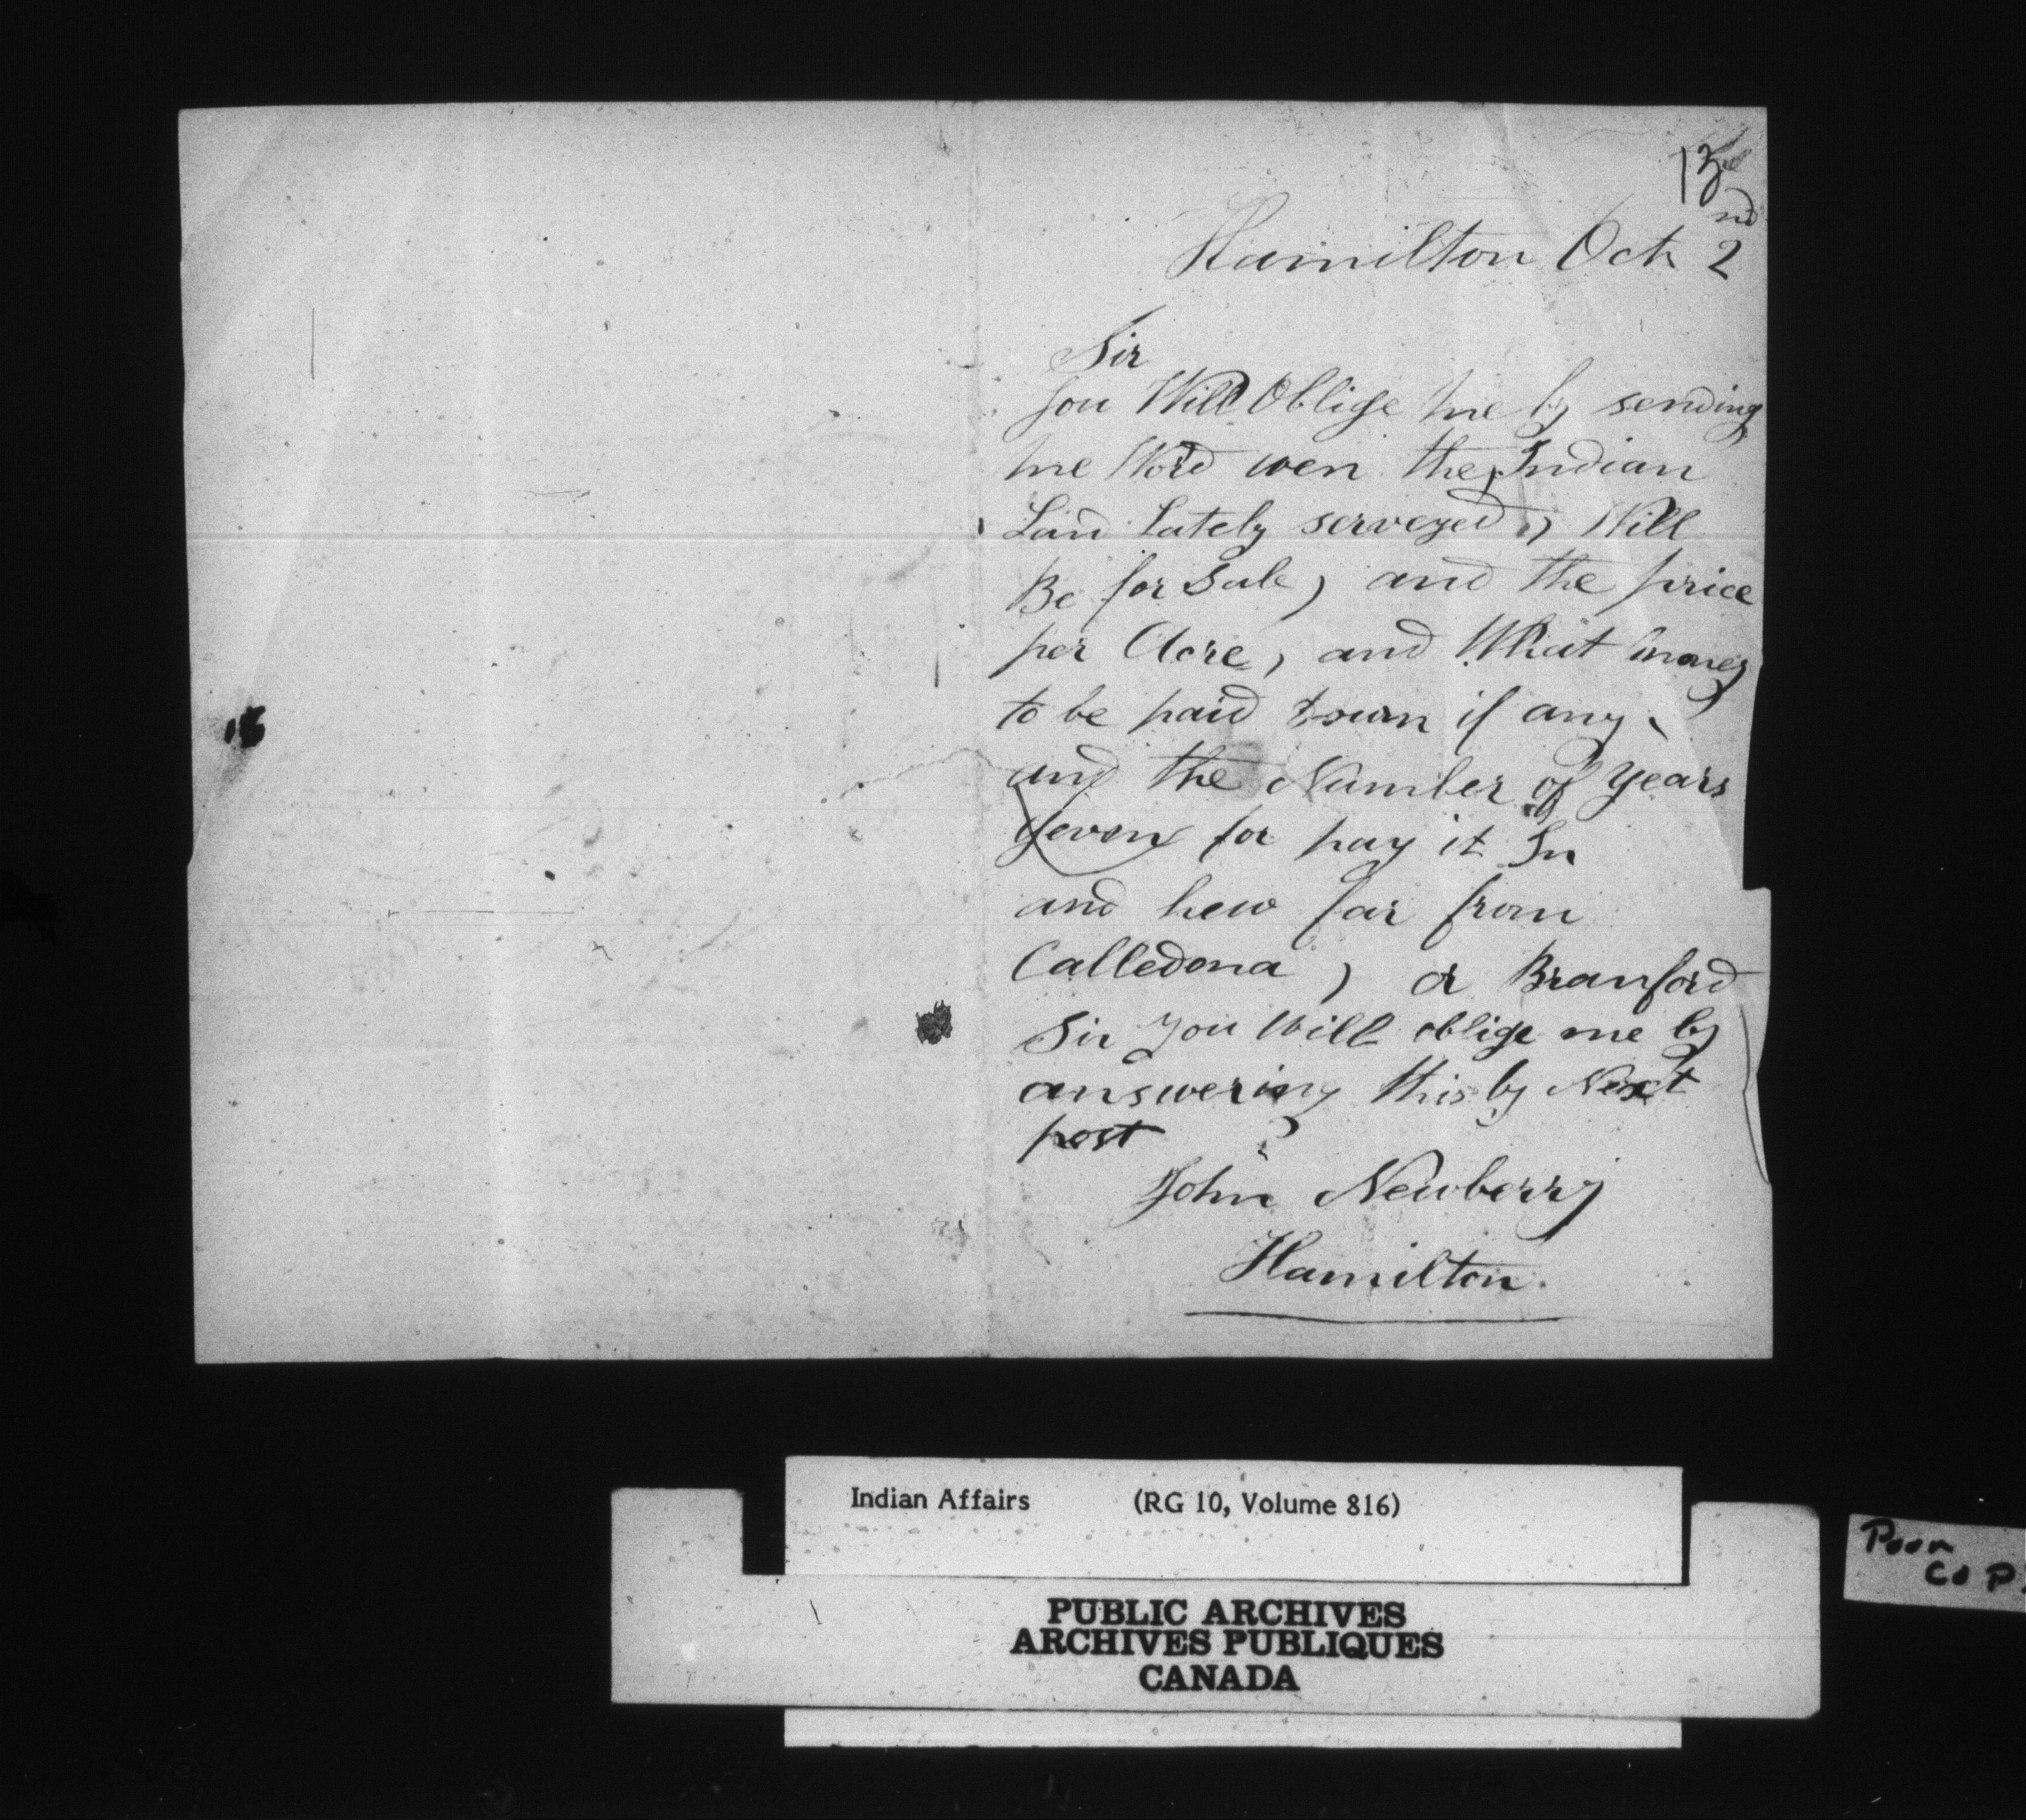 13
Hamilton Oct 2nd
Sir
you Will Oblige me by sending
me Word wen the Indian
Land Lately serveyed, Will
Be for Sale, and the price
per Acre, and What money
to be paid down if any
and the Number of years
geven for pay it In
and how far from
Calledona, or Branford
Sir you Will oblige me by
answering this by Next
post
John Newberry
Hamilton.
Indian Affairs (RG 10, Volume 816)
PUBLIC ARCHIVES
ARCHIVES PUBLIQUES
CANADA
Poor